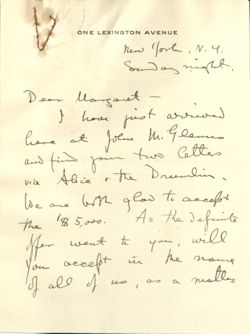 ONE LEXINGTON AVENUE
New York, N.Y.
Sunday night.
Dear Margaret –
I have just arrived
here at John M. Glenns
and find your two letters
via Alice & the Drumlin.
We are both glad to accept
the $5,000. As the definite
offer went to you, will
you accept in the name
of all of us, as a matter